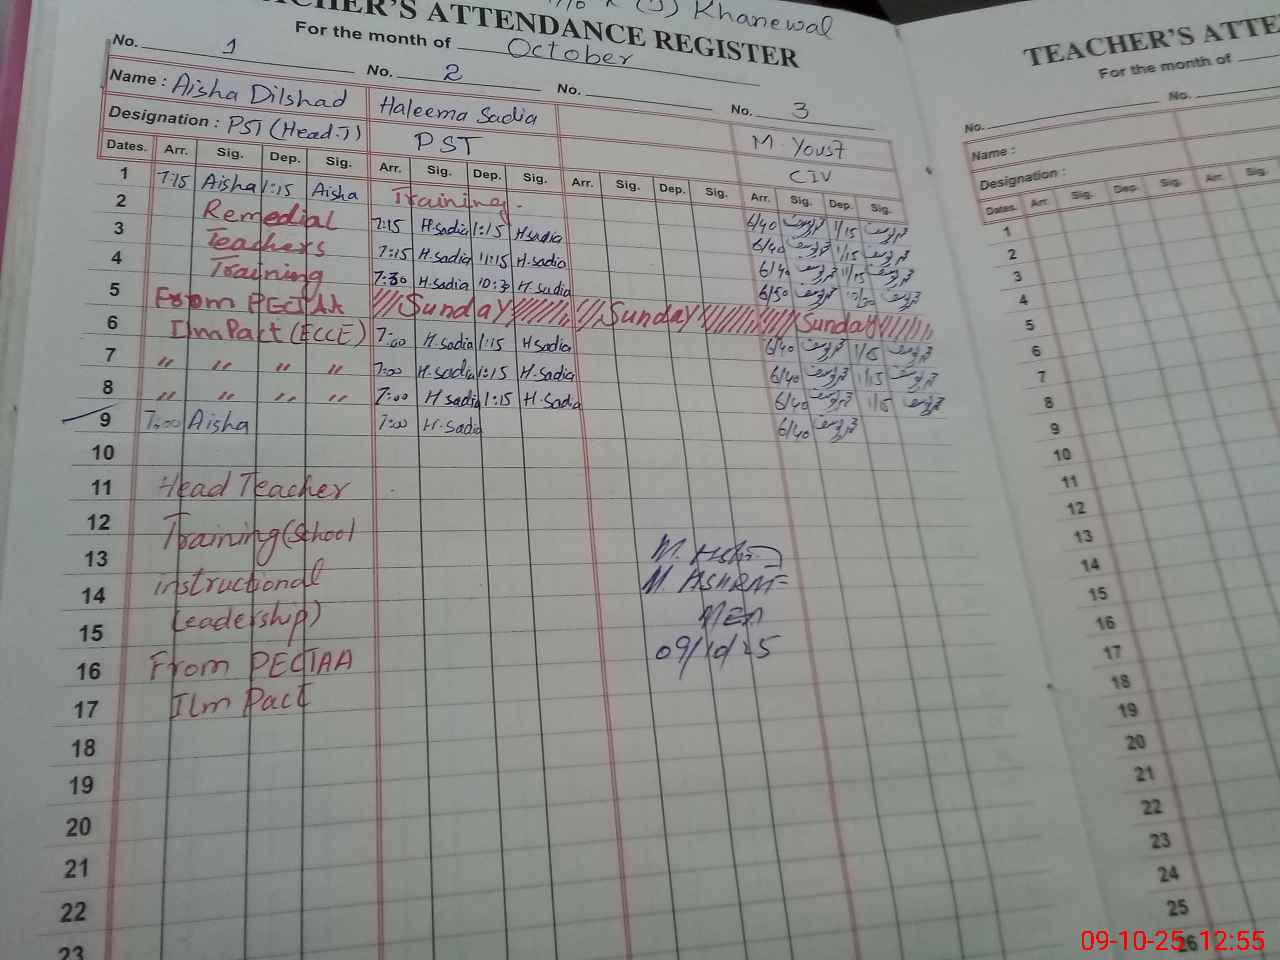 Khanewal
TEACHER'S ATTENDANCE REGISTER
For the month of October
No. 1 No. 2 No. No. 3
Name : Aisha Dilshad Haleema Sadia M. Yousf
Designation : PST (Head.T) PST CIV
Dates. Arr. Sig. Dep. Sig. Arr. Sig. Dep. Sig. Arr. Sig. Dep. Sig. Arr. Sig. Dep. Sig.
1 7:15 Aisha 1:15 Aisha Training.
2 Remedial 7:15 H.sadia 1:15 H.sadia 6/40 1/15
3 Teachers 7:15 H.sadia 11:15 H.sadia 6/40 1/15
4 Training 7:30 H.sadia 10:3 H.sadia 6/50
5 From PECTAA Sunday Sunday Sunday
6 Ilm Pact (ECCE) 7:00 H.sadia 1:15 H.sadia 6/40 1/15
7 〃 〃 〃 〃 7:00 H.sadia 1:15 H.sadia 6/40 1/15
8 〃 〃 〃 〃 7:00 H sadia 1:15 H.sadia 6/40 1/15
9 7:00 Aisha 7:00 H.sadia 6/40
10
11 Head Teacher
12 Training (School
13
14 instructional M. ASHRAF
15 Leadership) MEA
16 From PECTAA 09/10/25
17 Ilm Pact
18
19
20
21
22
23
TEACHER'S ATTE
For the month of
No. No.
Name :
Designation :
Dates. Arr. Sig. Dep. Sig. Arr. Sig.
1
2
3
4
5
6
7
8
9
10
11
12
13
14
15
16
17
18
19
20
21
22
23
24
25
26
09-10-25 12:55